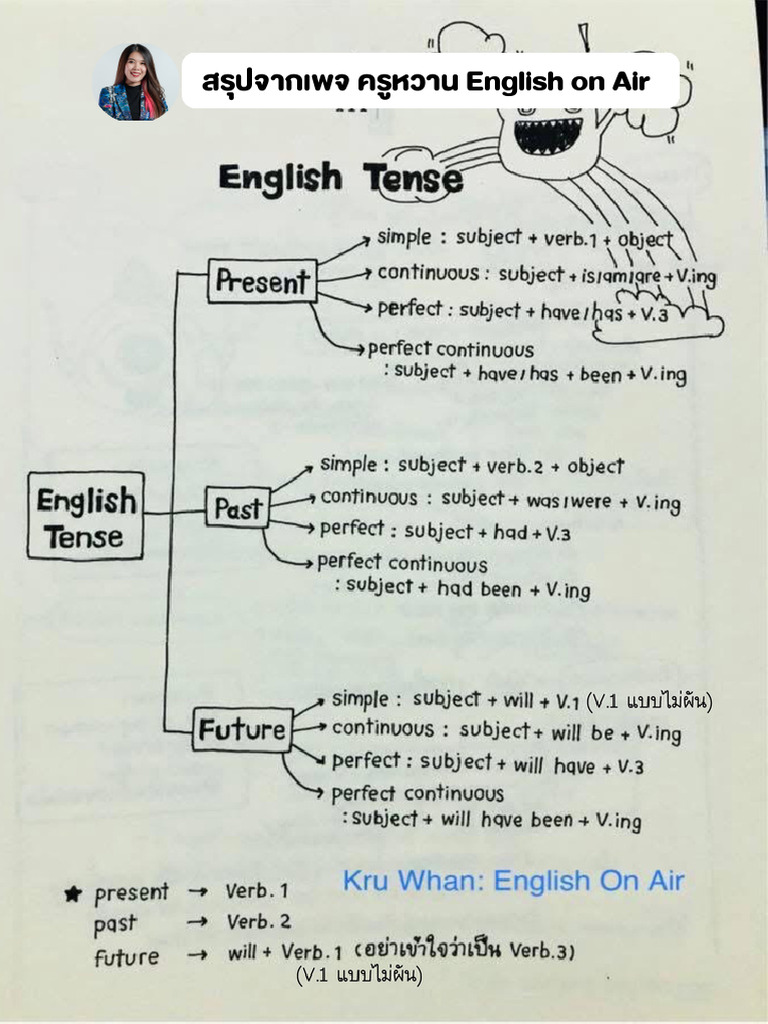 สรุปจากเพจ ครูหวาน English on Air
English Tense
Present
simple : subject + verb.1 + object
continuous : subject + is/am/are + V.ing
perfect : subject + have/has + V.3
perfect continuous
: subject + have/has + been + V.ing
English
Tense
Past
simple : subject + verb.2 + object
continuous : subject + was/were + V.ing
perfect : subject + had + V.3
perfect continuous
: subject + had been + V.ing
Future
simple : subject + will + V.1 (V.1 แบบไม่ผัน)
continuous : subject + will be + V.ing
perfect : subject + will have + V.3
perfect continuous
: subject + will have been + V.ing
Kru Whan: English On Air
★ present → Verb.1
past → Verb.2
future → will + Verb.1 (อย่าเข้าใจว่าเป็น Verb.3)
(V.1 แบบไม่ผัน)